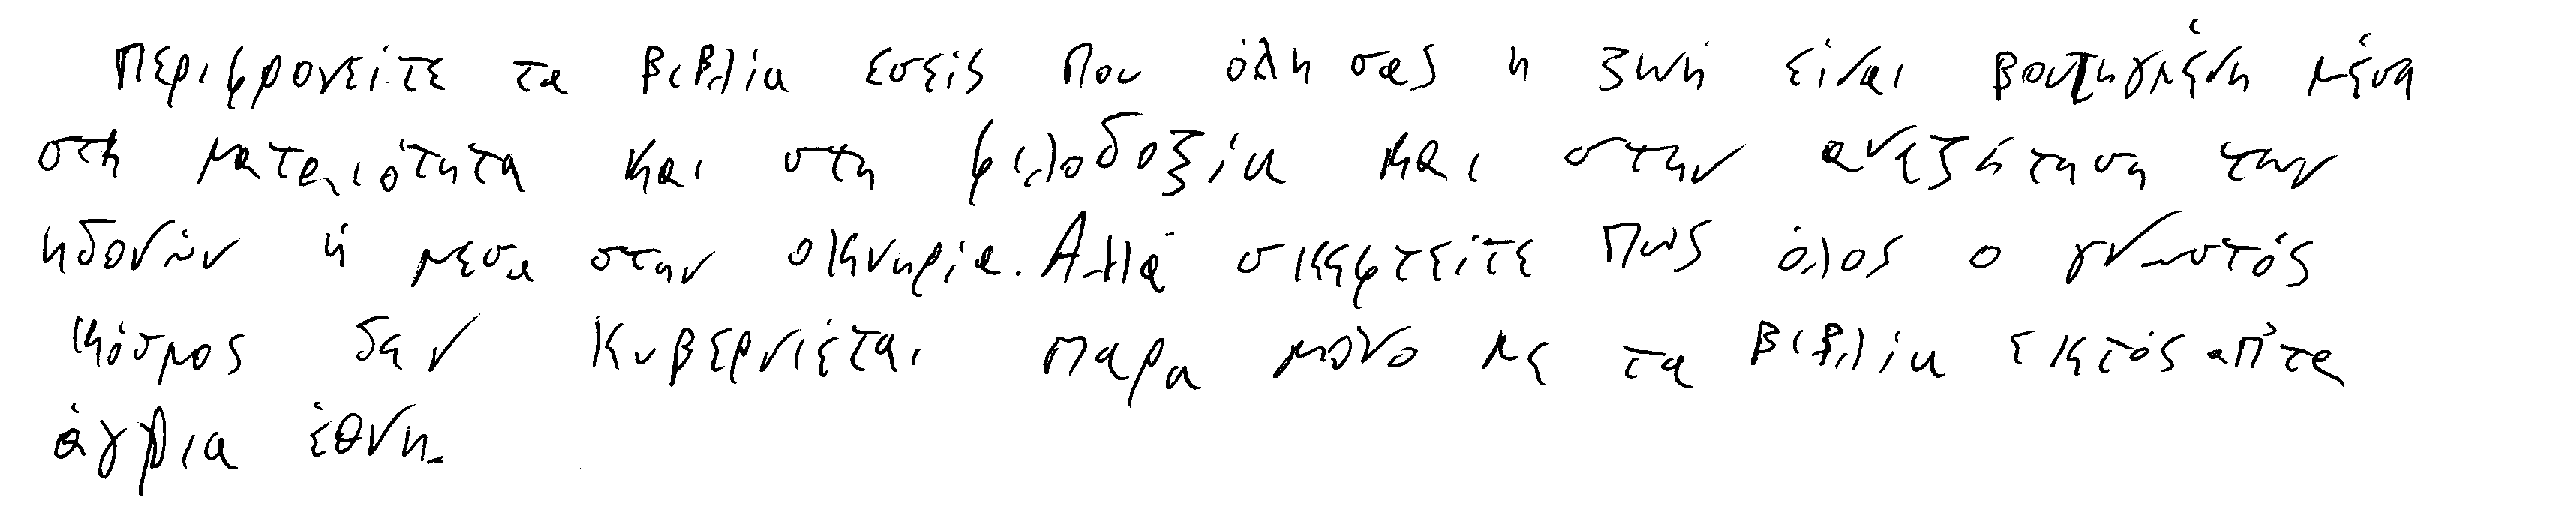 Περιφρονείτε τα βιβλία εσείς που όλη σας η ζωή είναι βουτηγμένη μέσα
στη ματαιότητα και στη φιλοδοξία και στην αναζήτηση των
ηδονών ή μεσα στην οκνηρία. Αλλά σκεφτείτε πως όλος ο γνωστός
κόσμος δεν κυβερνιέται παρα μόνο με τα βιβλία εκτός απ'τα
άγρια έθνη.